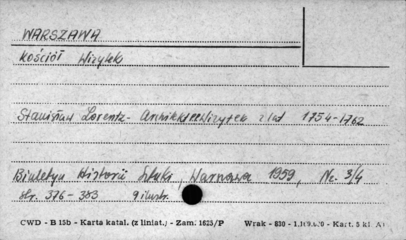 WARSZAWA
Kościół Wizytek
Stanisław Lorentz - Wizytek z lat 1754-1762
Biuletyn Historii Sztuki, Warszawa 1959, Nr. 3/4
str. 376 - 383 9 ilustr.
CWD - B 15b - Karta katal. (z liniat.) - Zam. 1623/P Wrak - 830 - Kart. 5 kl A1